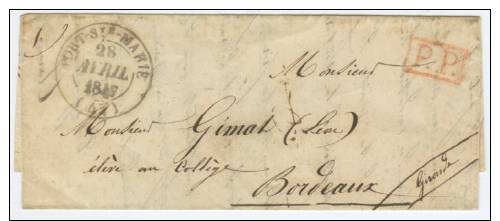 PORT-STE-MARIE
28
AVRIL
1847
(45)
P.P.
Monsieur
Monsieur Gimat (Léon)
élève au Collège
Bordeaux
Gironde